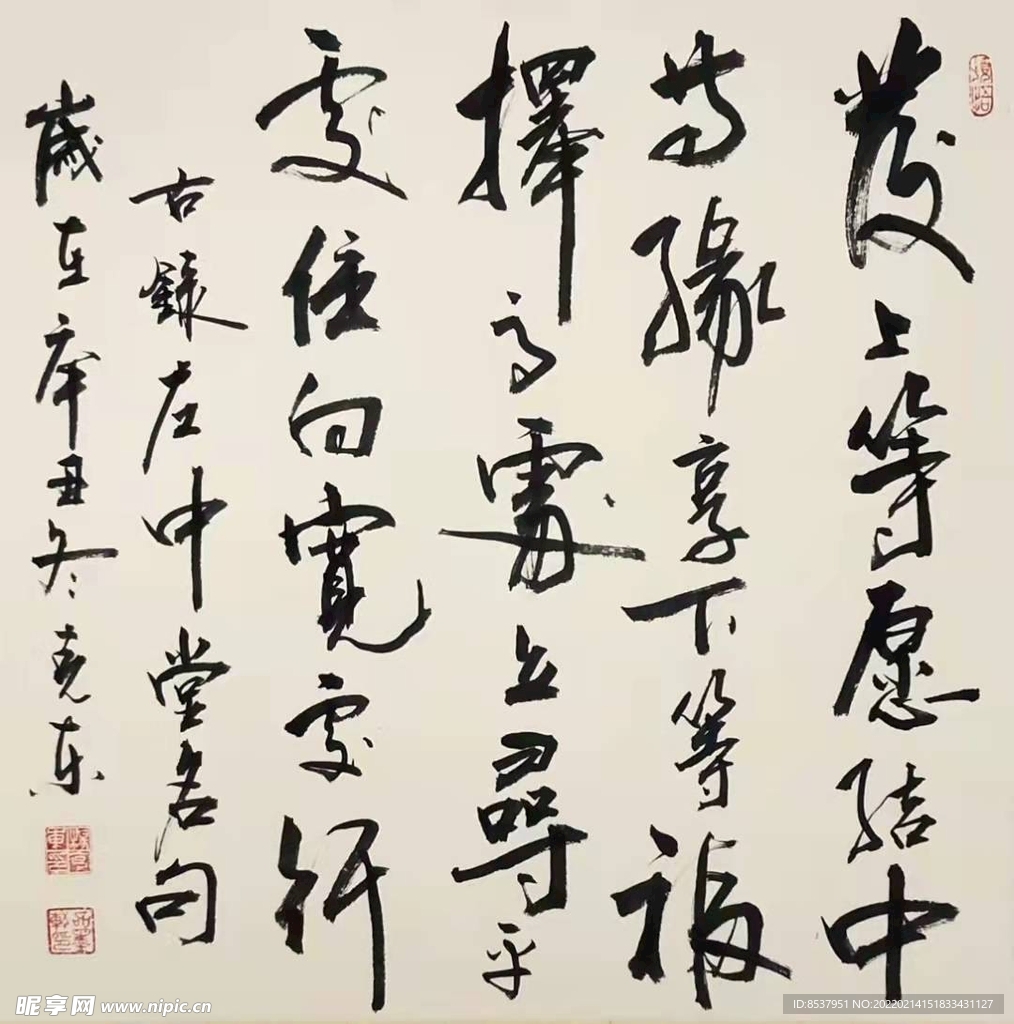 發上等愿結中
等緣享下等福
擇高處立尋平
處住向寬處行
古錄左中堂名句
歲在辛丑冬克東
昵享网 www.nipic.cn
ID:8537951 NO:20220214151833431127